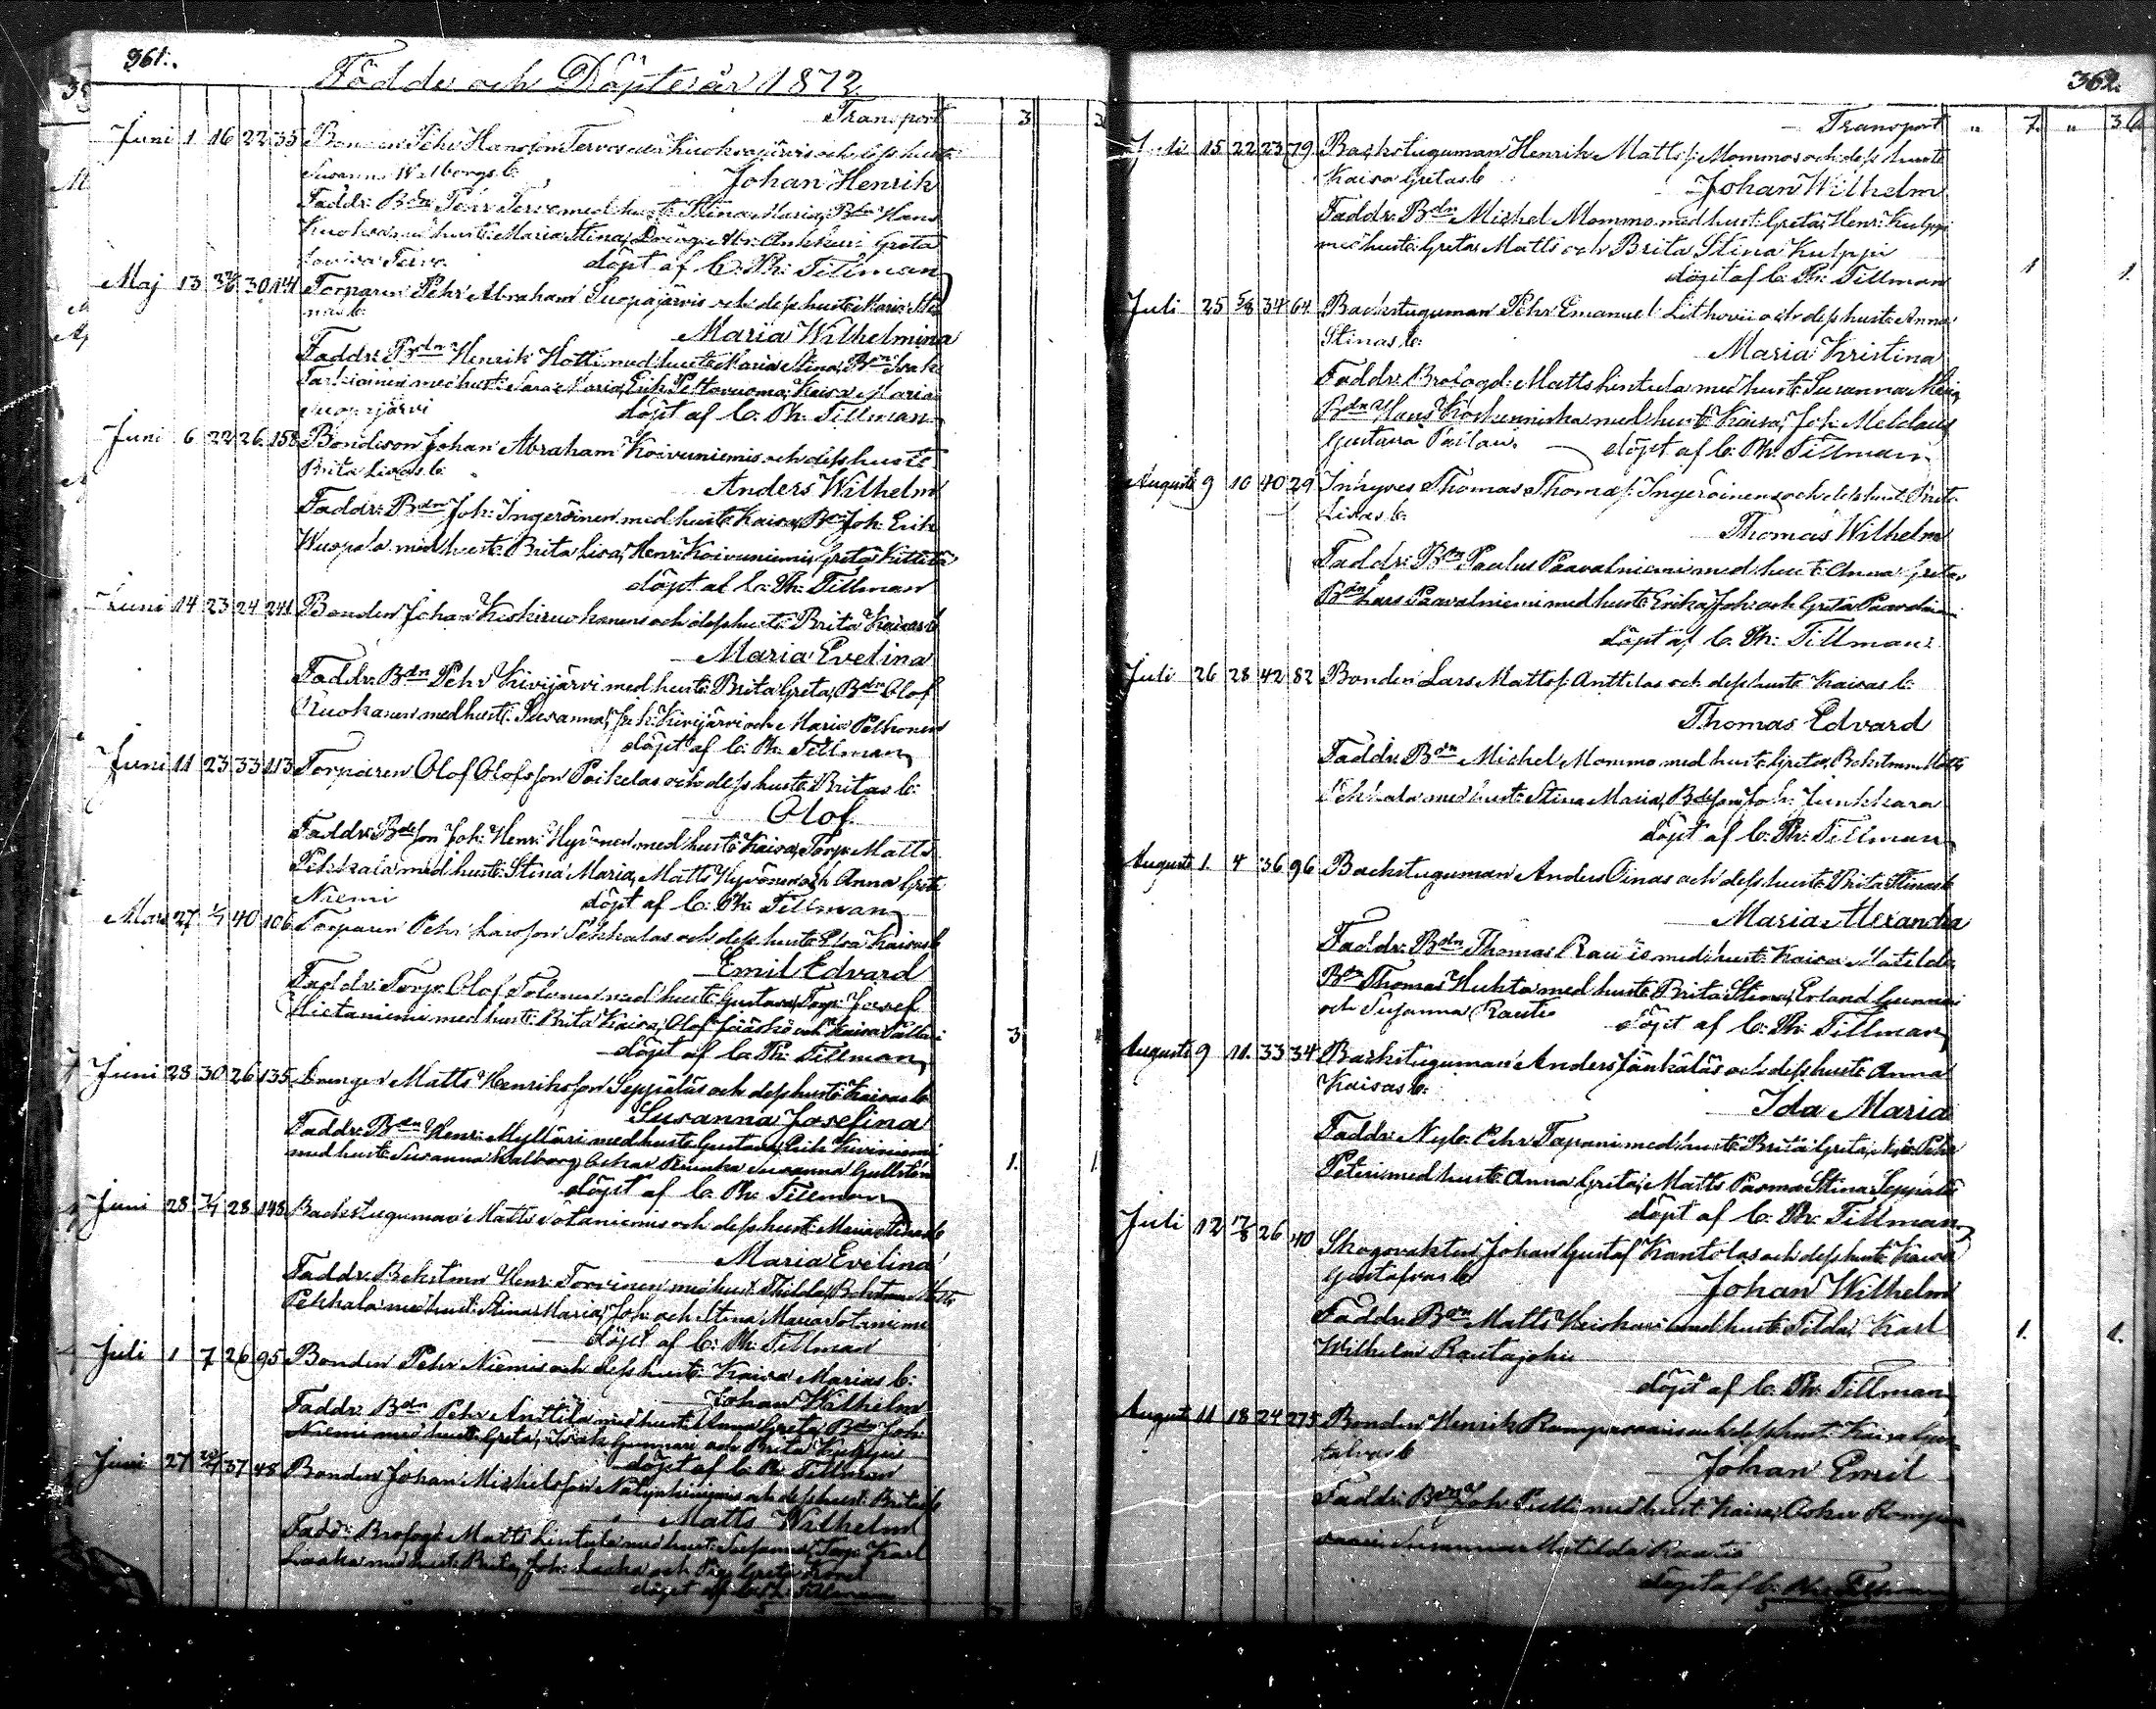 361.
Födde och Döpte år 1872
Transport 3
Juni 1 16 22 35 Bonden Pehr Hansson Tervos och dess hust:
Susanna Walborgs b:
Johan Henrik
Faddr: Bdn Pehr Tervo med hust: Stina Maria, Bdn Hans
med hust: Maria Stina, Greta
Lovisa Tervo
döpt af C. Ph: Tillman
Maj 13 30 141 Torparen Pehr Abraham Suopajärvis och dess hust: Maria Sti-
nas b:
Maria Wilhelmina
Faddr: Bdn Henrik Hotti med hust: Maria Stina, Bdn Isak
med hust: Sara Maria, Erik Peltovuoma, Kaisa Maria
Suopajärvi
döpt af C. Ph: Tillman
Juni 6 22 26 158 Bondeson Johan Abraham Koivuniemis och dess hust:
Brita Lisas b:
Anders Wilhelm
Faddr: Bdn Joh: Ingeröinen med hust: Kaisa, Bdn Joh: Erik
Wuopala med hust: Brita Lisa, Henr: Koivuniemi, Greta Kittilä
döpt af C. Ph: Tillman
Juni 14 23 24 241 Bonden Johan Keskiruokanens och dess hust: Brita Kaisas b
Maria Evelina
Faddr: Bdn Pehr Kivijärvi med hust: Brita Greta, Bdn Olof
Ruokanen med hust: Susanna, Joh: Kivijärvi och Maria Pelkonen
döpt af C. Ph: Tillman
Juni 11 23 33 113 Torparen Olof Olofsson Poikelas och dess hust: Britas b:
Olof
Faddr: Bdeson Joh: Henr: Hyvönen med hust: Kaisa, Torp: Matts
Pekkala med hust: Stina Maria, Matts Hyvönen och Anna Greta
Niemi
döpt af C. Ph: Tillman
Mars 27 1/7 40 106 Torparen Pehr Larsson Pekkalas och dess hust: Elsa Kaisas b
Emil Edvard
Faddr: Torp: Olof Tolonen med hust: Gustava, Torp: Josef
Hietaniemi med hust: Brita Kaisa, Olof Jääskö och Kaisa
döpt af C. Ph: Tillman
3
Juni 28 30 26 135 Drengen Matts Henriksson Seppäläs och dess hust: Kaisas b
Susanna Josefina
Faddr: Bdn Henr: Mylläri med hust: Gustava, Erik Kiviniemi
med hust: Susanna Walborg, Oskar Susanna Gullstén
döpt af C. Ph: Tillman
1.
Juni 28 7/7 28 148 Backstuguman Matts Sotaniemis och dess hust: Maria Stinas b
Maria Evelina
Faddr: Bckstmn Henr: Torvinen med hust: Thilda, Bckstmn Matts
Pekkala med hust: Stina Maria, Joh: och Stina Maria Sotaniemi
döpt af C. Ph: Tillman
Juli 1 7 26 95 Bonden Pehr Niemis och dess hust: Kaisa Marias b:
Johan Wilhelm
Faddr: Bdn Pehr Anttila med hust: Anna Greta, Bdn Joh:
Niemi med hust: Greta, Isak Gunnari och Brita Kulppi
döpt af C. Ph: Tillman
Juni 27 37 48 Bonden Johan Michelsson och dess hust: Britas b
Matts Wilhelm
Fadd: Brofogd: Matts Lintula med hust: Susanna, Torp: Karl
Laaka med hust: Brita, Joh: Laaka och Greta
döpt af C. Ph: Tillman
362.
Transport " 7. " 36
Juli 15 22 23 79 Backstuguman Henrik Matts. Mommos och dess hust:
Kaisa Gretas b
Johan Wilhelm
Faddr: Bdn Michel Mommo med hust: Greta, Henr: Kulppi
med hust: Greta, Matts och Brita Stina Kulppi
döpt af C. Ph: Tillman
1 1.
Juli 25 5/8 34 64 Backstuguman Pehr Emanuel Lithovii och dess hust: Anna
Stinas b:
Maria Kristina
Faddr: Brofogd: Matts Lintula med hust: Susanna,
Bdn Hans Köykenniska med hust: Kaisa, Joh: Melelaus
Gustava
döpt af C. Ph: Tillman
Augusti 9 10 40 29 Inhyses Thomas Thomass. Ingeröinens och dess hust: Brita
Lisas b:
Thomas Wilhelm
Faddr: Bdn Paulus Paavalniemi med hust: Anna Greta
Bdn Lars Paavalniemi med hust: Erika, Joh: och Greta Paavalniemi
döpt af C. Ph: Tillman
Juli 26 28 42 82 Bonden Lars Mattss. Anttilas och dess hust: Kaisas b:
Thomas Edvard
Faddr: Bdn Michel Mommo med hust: Greta, Bckstmn Matts
Pekkala med hust: Stina Maria, Bdeson Joh: Junkkara
döpt af C. Ph: Tillman
Augusti 1. 4 36 96 Backstuguman Anders Oinas och dess hust: Brita Stinas b
Maria Alexandra
Faddr: Bdn Thomas Rautio med hust: Kaisa Matilda
Bdn Thomas Huhta med hust: Brita Stina, Erland Gunnari
och Susanna Rautio
döpt af C. Ph: Tillman
Augusti 9 11. 33 34 Backstuguman Anders Jänkäläs och dess hust: Anna
Kaisas b:
Ida Maria
Faddr: Nyb: Pehr Tapani med hust: Brita Greta, Nyb: Pehr
Peteri med hust: Anna Greta, Matts Parma, Stina Seppälä
döpt af C. Ph: Tillman
Juli 12 26 40 Skogsvakten Johan Gustaf Kantolas och dess hust: Kaisa
Gustafvas b
Johan Wilhelm
Faddr: Bdn Matts Heiskari med hust: Tilda, Karl
Wilhelm Rautajoki
1. 1.
döpt af C. Ph: Tillman
Augusti 11 18 24 275 Bonden Henrik Rompasaaris och dess hust: Kaisa Gus-
tafvas b
Johan Emil
Faddr: Bdn Joh: Pulli med hust: Kaisa, Oskar Rompa-
saari, Matilda Rautio
döpt af C. Ph: Tillman